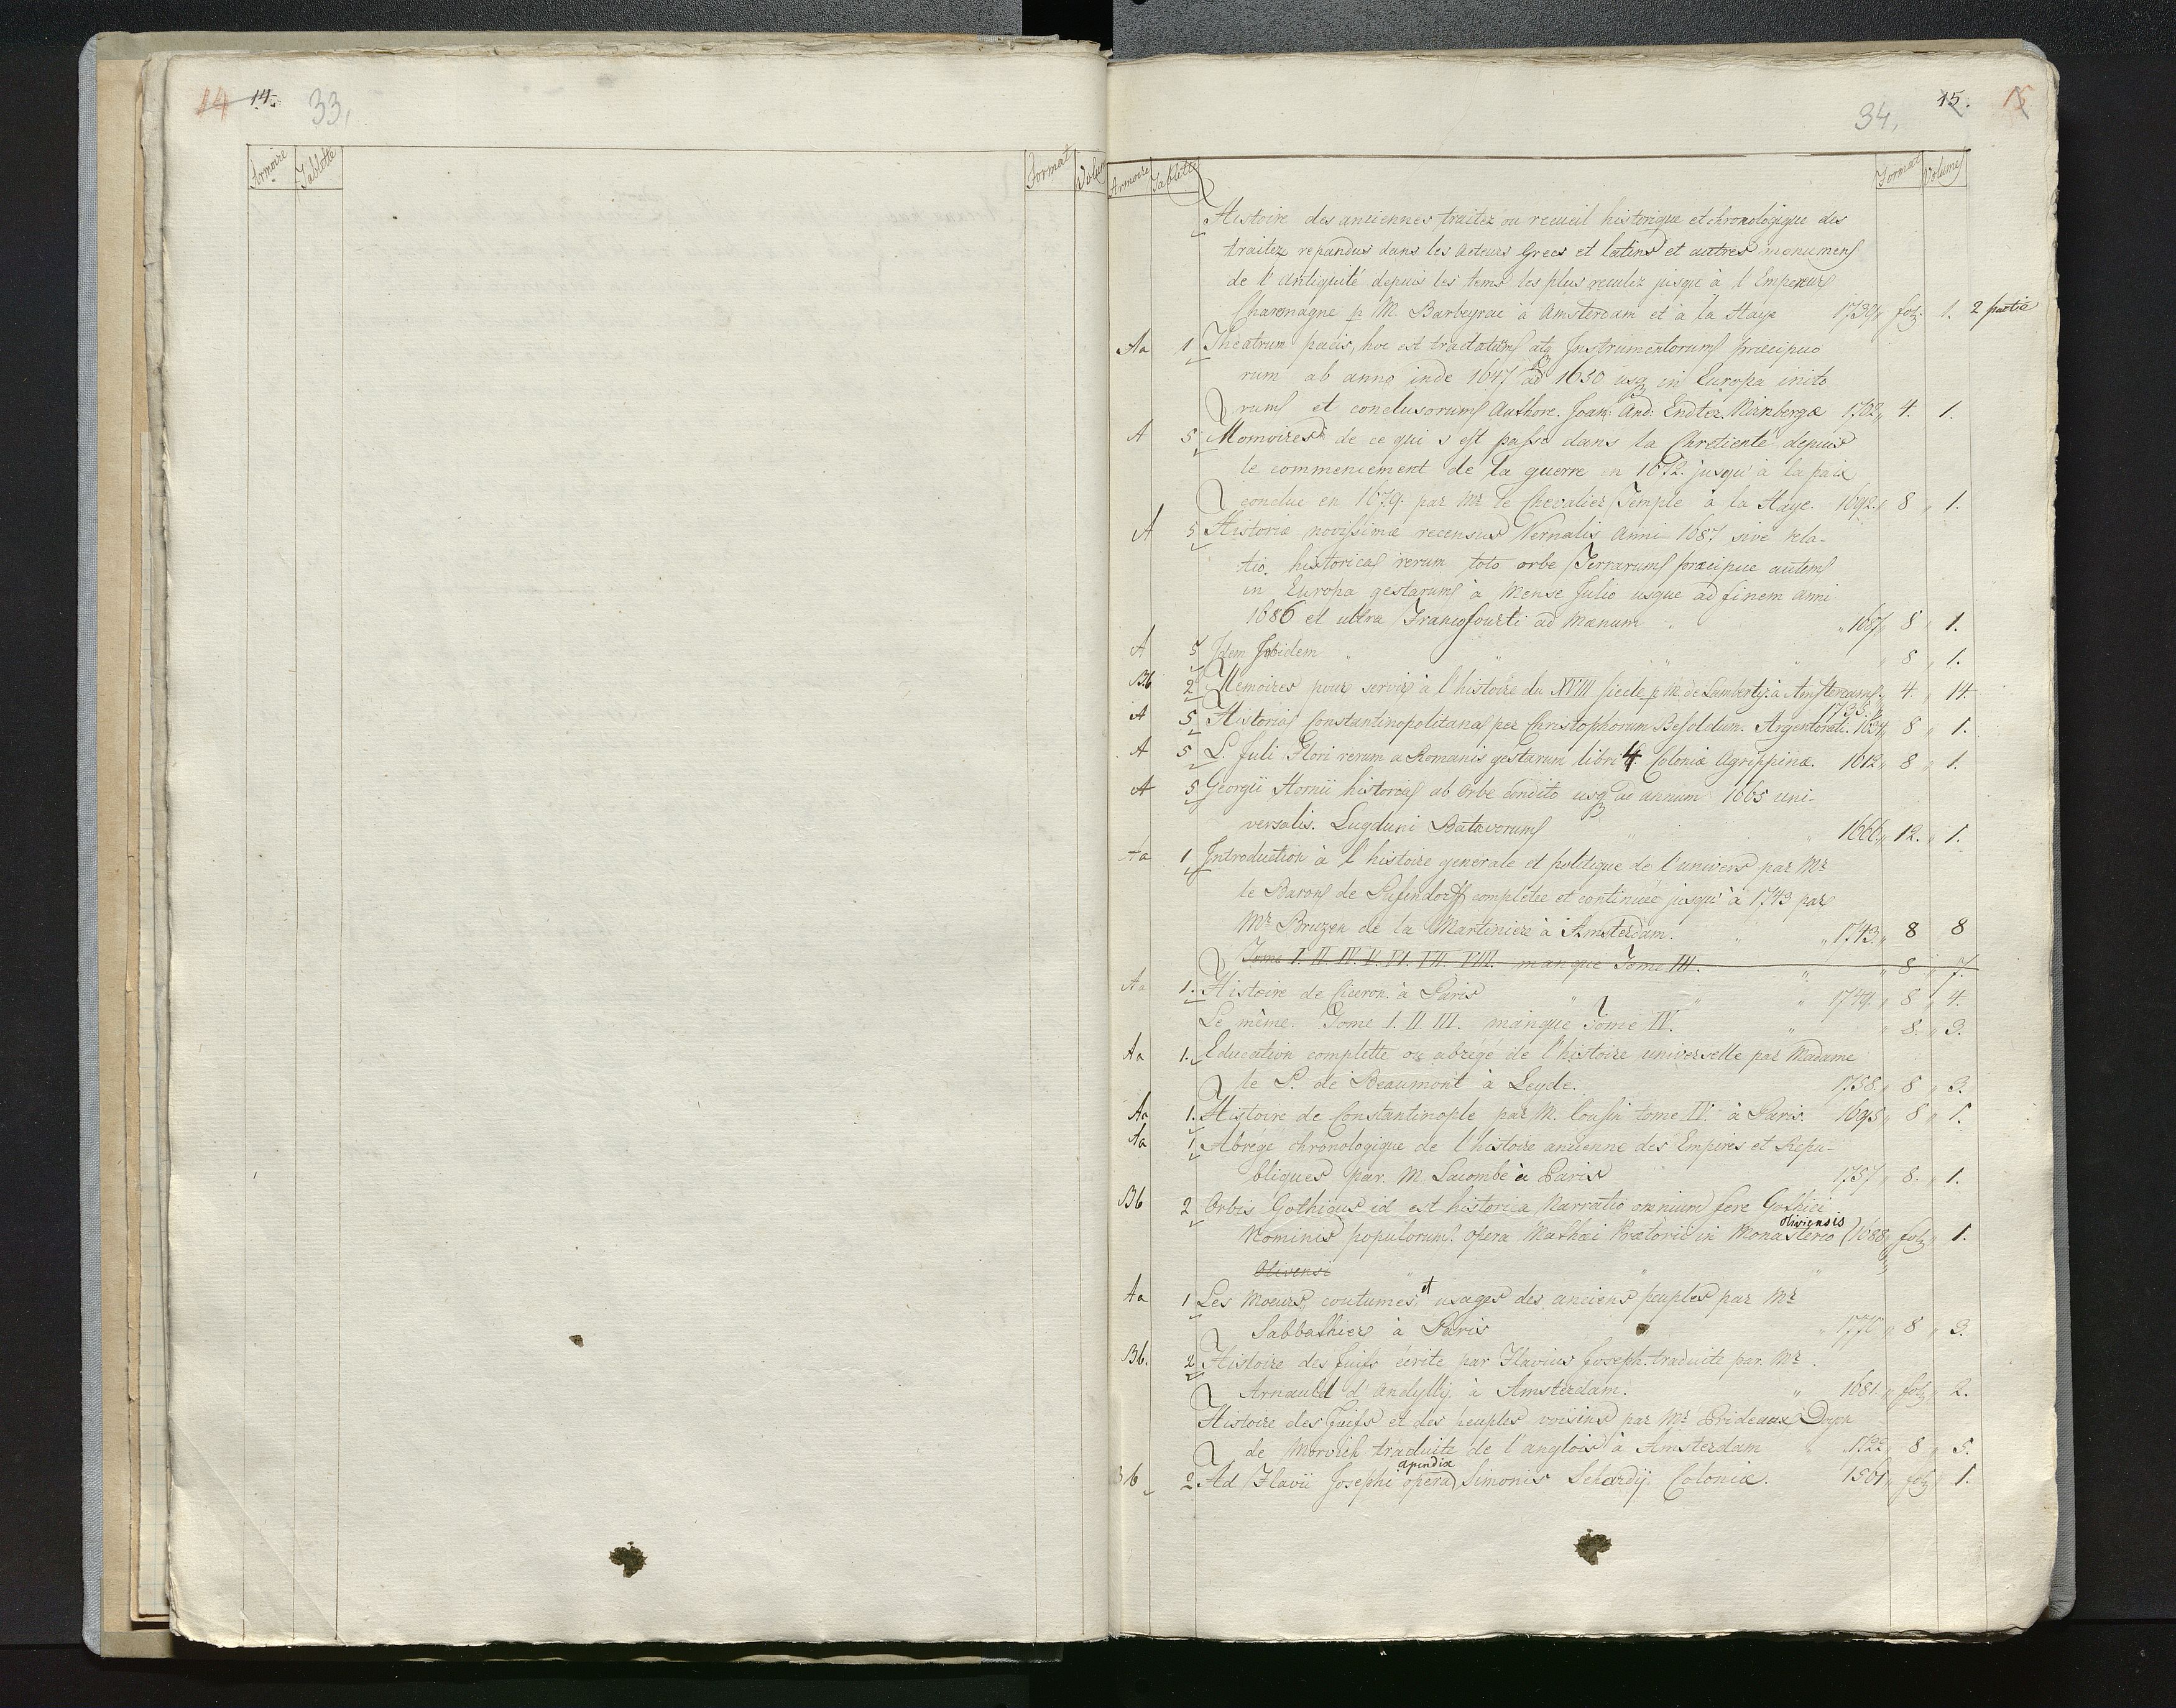 14 14. 33,
Armoire Tablette Format Volum
34, 15. 15
Armoire Tablette Format Volume
Histoire des anciennes traitez ou recueil historique et chronologique des
traitez repandus dans les Auteurs Grecs et latins et autres monumens
de l'Antiquité depuis les tems les plus reculez jusqu'à l'Empereur
Charemagne p M. Barbeyrac à Amsterdam et à la Haye 1739 fol. 1. 2 partie
Aa 1 Theatrum pacis, hoc est tractatum atq Instrumentorum præcipuo
rum ab anno inde 1647 ad 1650 usq in Europa inito
rum et conclusorum Authore. Joan: And: Endter. Nirnbergæ 1702 4. 1.
A 5 Momoires de ce qui s'est passé dans la Chretienté depuis
le commencement de la guerre en 1672. jusqu'à la paix
conclue en 1679. par Mr le Chevalier Temple à la Haye. 1692. 8 1.
A 5 Historiæ novissimæ recensus Vernalis Anni 1687 sive rela-
tio historica rerum toto orbe Terrarum præcipue autem
in Europa gestarum à Mense Julio usque ad finem anni
1686 et ultra Francofourti ad Mænum 1687 8 1.
A 5 Idem Ibidem 8 1.
Bb 2 Memoires pour servir à l'histoire du XVIII siecle p M. de Lamberty. à Amsterdam. 4. 14
1735.
A 5 Historia Constantinopolitana per Christophorum Besoldum. Argentorati. 1634 8 1.
A 5 L. Juli Flori rerum a Romanis gestarum libri 4 Coloniæ Agrippinæ. 1612 8 1.
A 5 Georgii Hornii historia ab Orbe condito usq ad annum 1665 uni-
versalis. Lugduni Batavorum 1666 12. 1.
Aa 1 Introduction à l'histoire generale et politique de l'univers par Mr
le Baron de Pufendorff completée et continuée jusqu'à 1743 par
Mr Bruzen de la Martiniere à Amsterdam. 1743. 8 8
Tome I. II. IV. V. VI. VII. VIII. manque Tome III. 8 7.
Aa 1. Histoire de Ciceron. à Paris 1749. 8 4.
Le même. Tome I. II. III. manque Tome IV. 8. 3.
Aa 1. Education complette ou abregé de l'histoire universelle par Madame
le P. de Beaumont à Leyde. 1758. 8 3.
Aa 1. Histoire de Constantinople par M. Cousin tome IV. à Paris. 1695 8 1.
Aa 1 Abregé chronologique de l'histoire ancienne des Empires et Repu-
bliques par. M. Lacombe à Paris 1757 8. 1.
Bb 2 Orbis Gothicus id est historica Narratio omnium fere Gothici
Nominis populorum. opera Mathæi Prætorii in Monasterio oliviensis 1688 fol 1.
Olivensi
Aa 1 Les Moeurs, coutumes et usages des anciens peuples par Mr
Sabbathier à Paris 8 3.
Bb. 2 Histoire des Juifs écrite par Flavius Joseph. traduite par Mr.
Arnauld d'Andylly. à Amsterdam. 1681. fol 2.
Histoire des Juifs et des peuples voisins par Mr Prideaux Doyen
de Norvich traduite de l'anglois à Amsterdam 1722 8 5.
apendix
Bb 2 Ad Flavii Josephi opera Simonis Schardij. Coloniæ. fol 1.